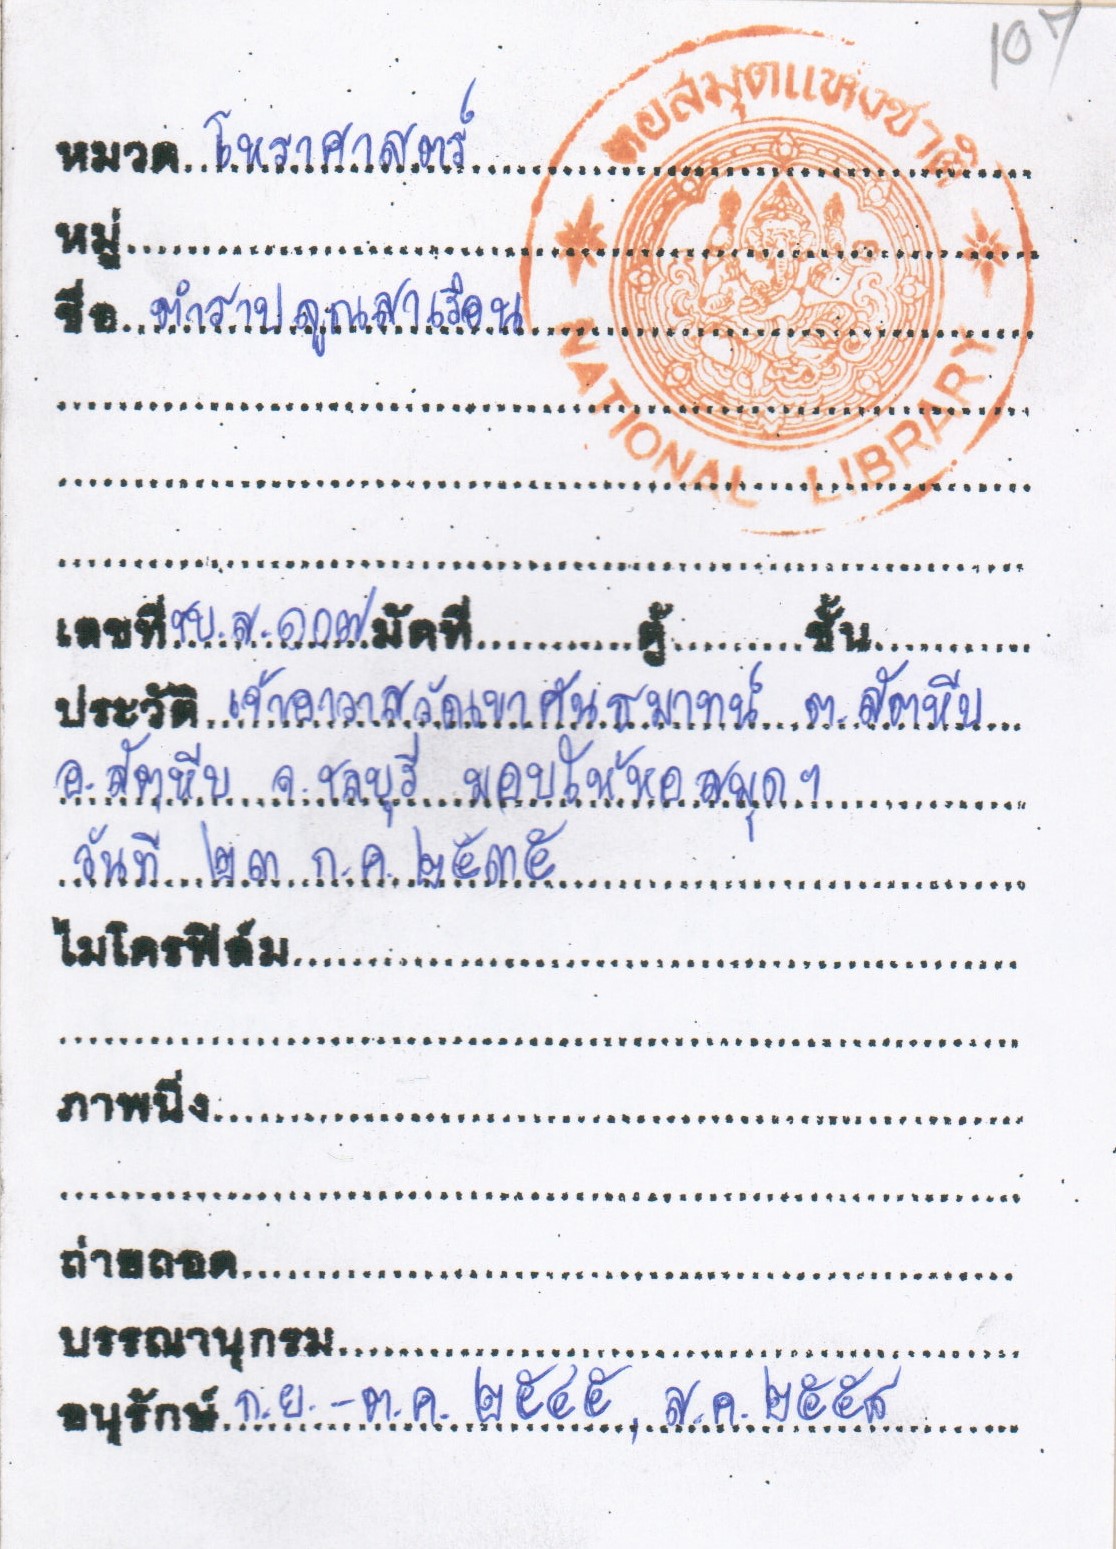 107
หอสมุดแห่งชาติ
หมวด โหราศาสตร์
หมู่
ชื่อ ตำราปลูกเสาเรือน
NATIONAL LIBRARY
เลขที่ ชบ.ส.๑๐๗ มัดที่ ตู้ ชั้น
ประวัติ เจ้าอาวาสวัดเขาคันธมาทน์ ต.สัตหีบ
อ.สัตหีบ จ.ชลบุรี มอบให้หอสมุดฯ
วันที่ ๒๓ ก.ค. ๒๕๓๕
ไมโครฟิล์ม
ภาพนิ่ง
ถ่ายถอด
บรรณานุกรม
อนุรักษ์ ก.ย.-ต.ค. ๒๕๔๕, ส.ค. ๒๕๕๘